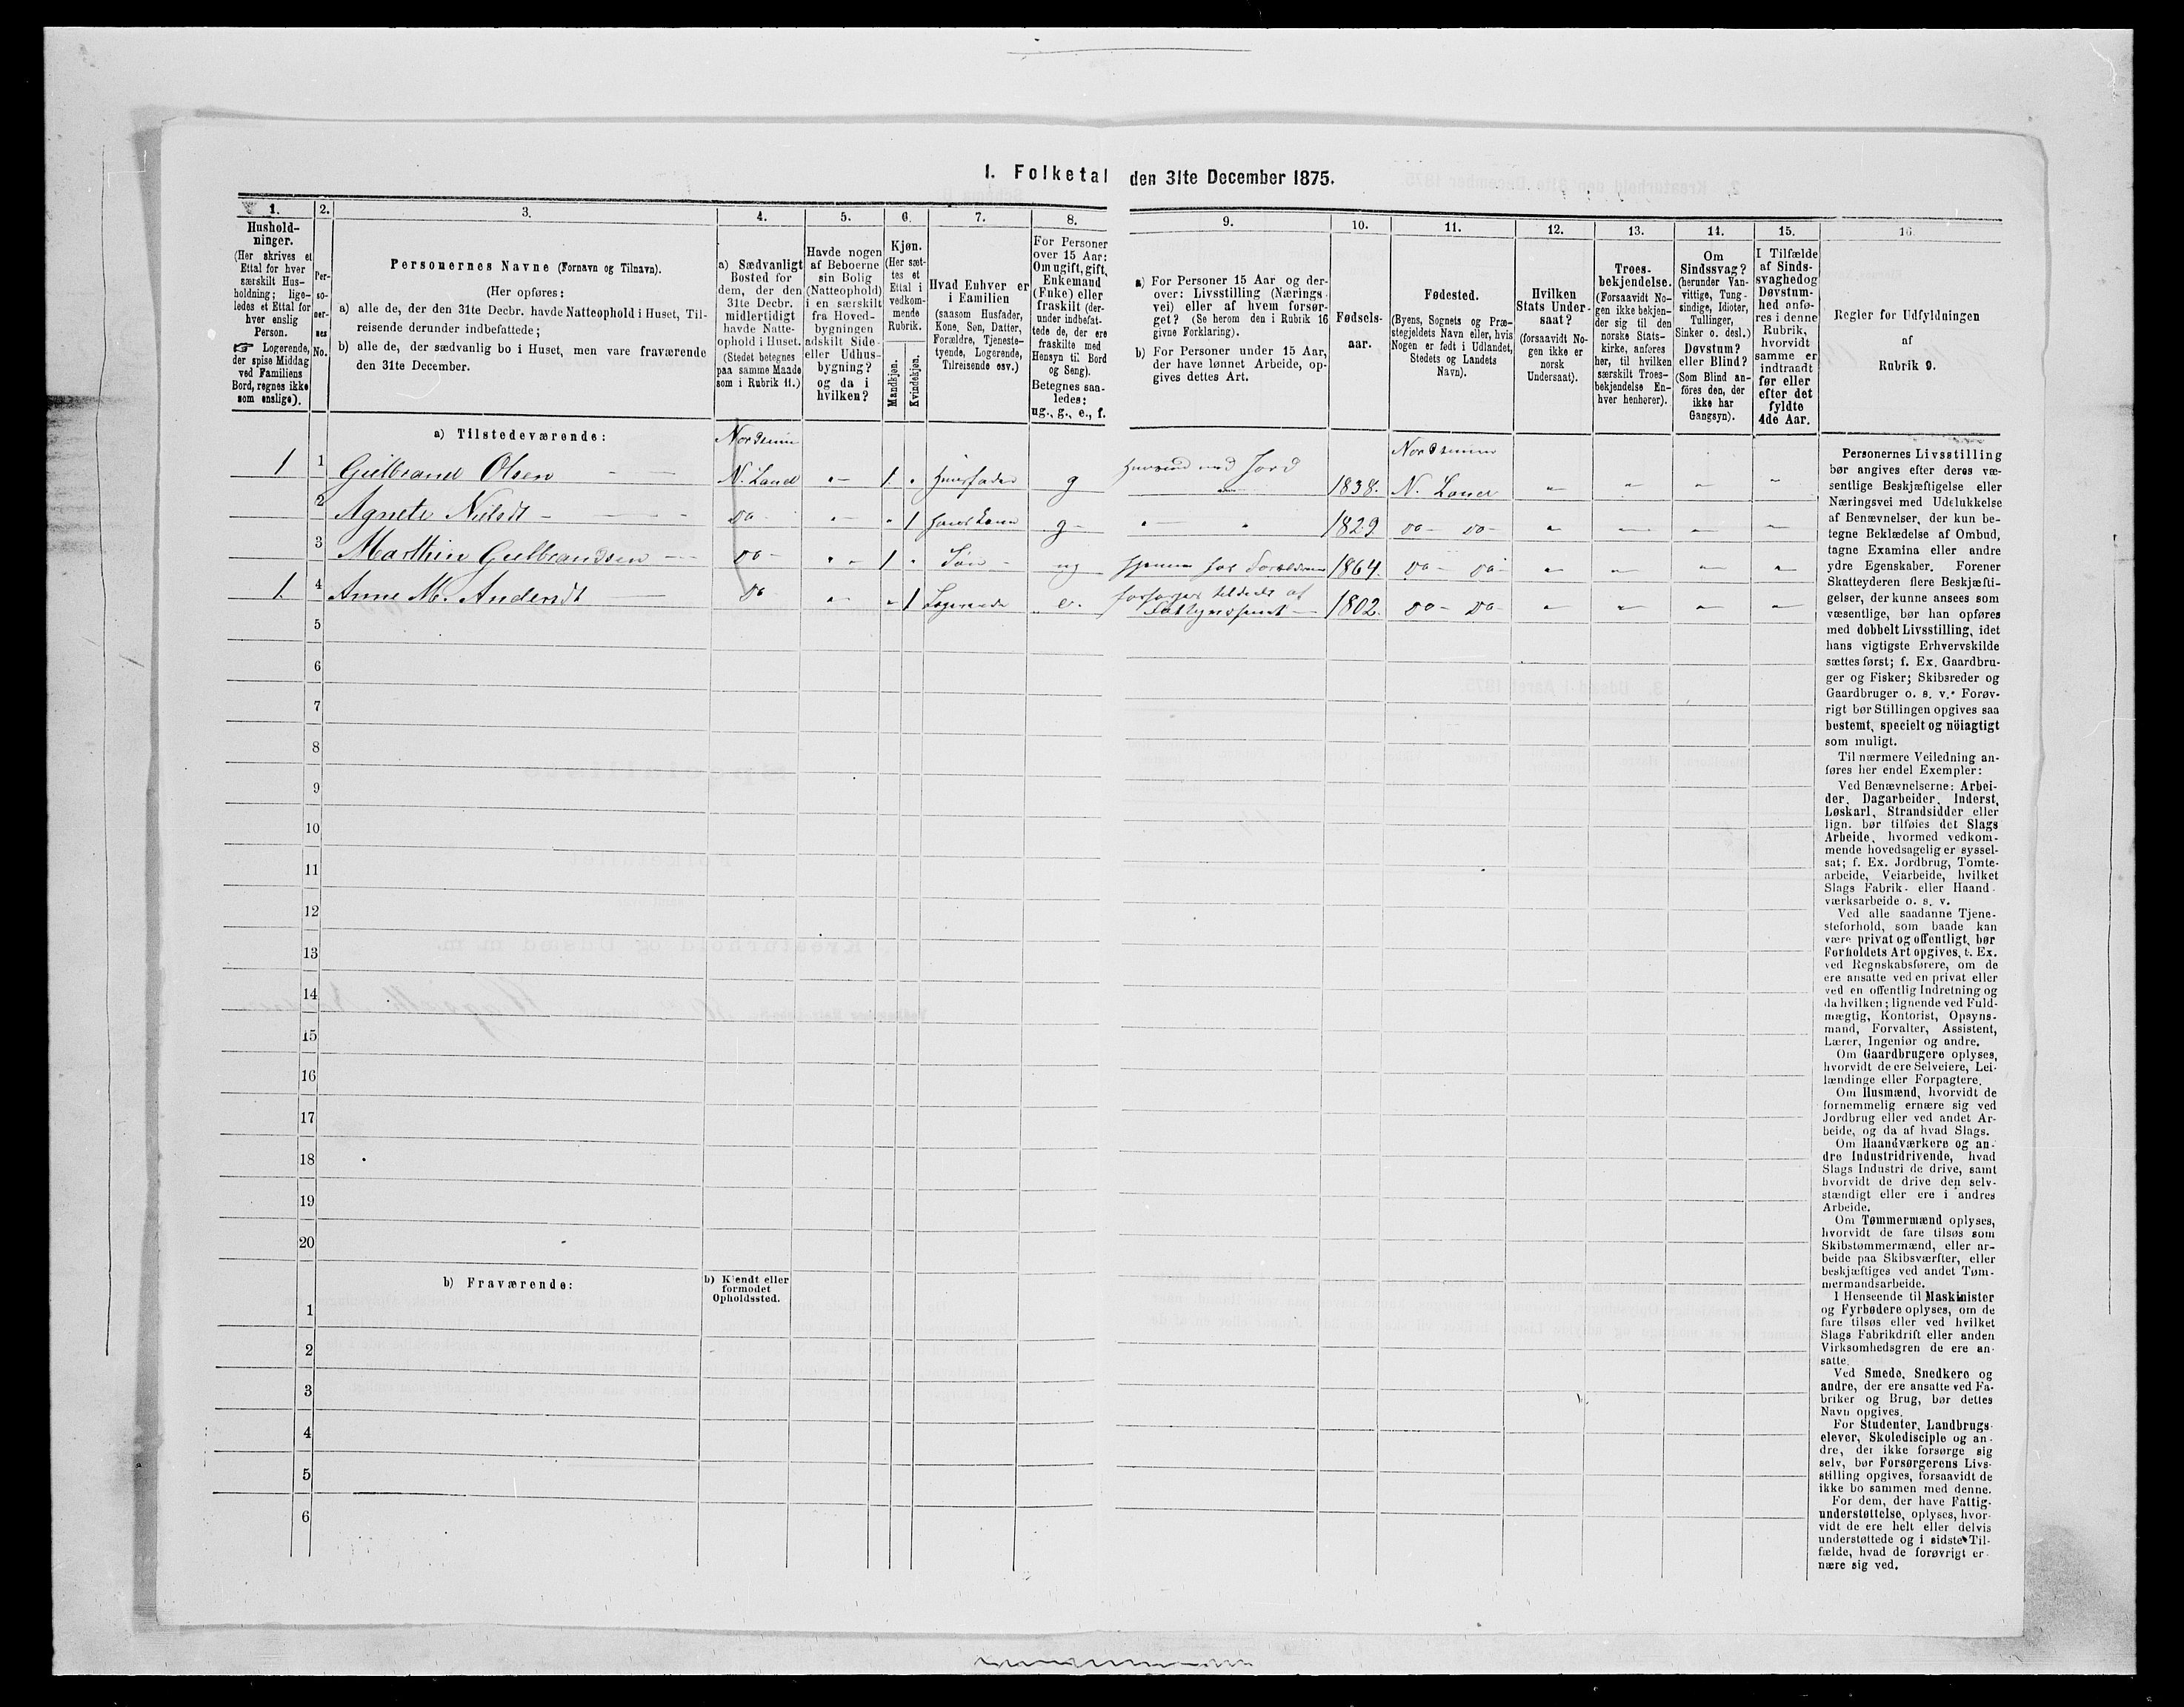 1. Folketal den 31te December 1875.
1.
2.
3.
4.
5.
6.
7.
8.
9.
10.
11.
12.
13.
14.
15.
16.
Hushold-
ninger.
(Her skrives et
Ettal for hver
særskilt Hus-
holdning; lige-
ledes et Ettal for
hver enslig
Person.
☞ Logerende,
der spise Middag
ved Familiens
Bord, regnes ikke
som enslige).
Per-
so-
ner-
nes
No.
Personernes Navne (Fornavn og Tilnavn).
(Her opføres:
a) alle de, der den 31te Decbr. havde Natteophold i Huset, Til-
reisende derunder indbefattede;
b) alle de, der sædvanlig bo i Huset, men vare fraværende
den 31te December.
a) Sædvanligt
Bosted for
dem, der den
31te Decbr.
midlertidigt
havde Natte-
ophold i Huset.
(Stedet betegnes
paa samme Maade
som i Rubrik 11.)
Havde nogen
af Beboerne
sin Bolig
(Natteophold)
i en særskilt
fra Hoved-
bygningen
adskilt Side-
eller Udhus-
bygning?
og da i
hvilken?
Kjøn.
(Her sæt-
tes et
Ettal i
vedkom-
mende
Rubrik.
Mandkjøn.
Kvindekjøn.
Hvad Enhver er
i Familien
(saasom Husfader,
Kone, Søn, Datter,
Forældre, Tjeneste-
tyende, Logerende,
Tilreisende osv.)
For Personer
over 15 Aar:
Om ugift, gift,
Enkemand
(Enke) eller
fraskilt (der-
under indbefat-
tede de, der ere
fraskilte med
Hensyn til Bord
og Seng).
Betegnes saa-
ledes:
ug., g., e., f.
a) For Personer 15 Aar og der-
over: Livsstilling (Nærings-
vei) eller af hvem forsør-
get? (Se herom den i Rubrik 16
givne Forklaring).
b) For Personer under 15 Aar,
der have lønnet Arbeide, op-
gives dettes Art.
Fødsels-
aar.
Fødested.
(Byens, Sognets og Præ-
stegjeldets Navn eller, hvis
Nogen er født i Udlandet,
Stedets og Landets
Navn).
Hvilken
Stats Under-
saat?
(forsaavidt No-
gen ikke er
norsk
Undersaat).
Troes-
bekjendelse.
(Forsaavidt No-
gen ikke bekjen-
der sig til den
norske Stats-
kirke, anføres
her, til hvilken
særskilt Troes-
bekjendelse En-
hver henhører).
Om
Sindssvag?
(herunder Van-
vittige, Tung-
sindige, Idioter,
Tullinger,
Sinker o. desl.)
Døvstum?
eller Blind?
(Som Blind an-
föres den, der
ikke har
Gangsyn).
I Tilfælde
af Sinds-
svaghed og
Døvstum-
hed anfø-
res i denne
Rubrik,
hvorvidt
samme er
indtraadt
før eller
efter det
fyldte
4de Aar.
Regler for Udfyldningen
af
Rubrik 9.
a) Tilstedeværende:
1 1 Gulbrand Olsen Nordsinn N. Land 1 Husfader g Husmand med Jord 1838. Nordsinn N. Land
2 Agnete Nilsdt do 1 Huskone g 1829. do do
3 Marthin Gulbrandsen do 1 Søn ug hjemme hos Forældrene 1864. do do
1. 4 Anne M. Andersdt do 1 Logerende e. forsørges tildeels af Fattigvæsenet 1802. do do
5
6
7
8
9
10
11
12
13
14
15
16
17
18
19
20
b) Fraværende:
b) Kjendt eller
formodet
Opholdssted.
1
2
3
4
5
6
Personernes Livsstilling
bør angives efter deres væ-
sentlige Beskjæftigelse eller
Næringsvei med Udelukkelse
af Benævnelser, der kun be-
tegne Beklædelse af Ombud,
tagne Examina eller andre
ydre Egenskaber. Forener
Skatteyderen flere Beskjæfti-
gelser, der kunne ansees som
væsentlige, bør han opføres
med dobbelt Livsstilling, idet
hans vigtigste Erhvervskilde
sættes først; f. Ex. Gaardbru-
ger og Fisker; Skibsreder og
Gaardbruger o. s. v. Forøv-
rigt bør Stillingen opgives saa
bestemt, specielt og nöiagtigt
som muligt.
Til nærmere Veiledning an-
føres her endel Exempler:
Ved Benævnelserne: Arbei-
der, Dagarbeider, Inderst,
Løskarl, Strandsidder eller
lign. bør tilføies det Slags
Arbeide, hvormed vedkom-
mende hovedsagelig er syssel-
sat; f. Ex. Jordbrug, Tomte-
arbeide, Veiarbeide, hvilket
Slags Fabrik- eller Haand-
værksarbeide o. s. v.
Ved alle saadanne Tjene-
steforhold, som baade kan
være privat og offentligt, bør
Forholdets Art opgives, f. Ex.
ved Regnskabsførere, om de
ere ansatte ved en privat eller
ved en offentlig Indretning og
da hvilken; lignende ved Fuld-
mægtig, Kontorist, Opsyns-
mand, Forvalter, Assistent,
Lærer, Ingeniør og andre.
Om Gaardbrugere oplyses,
hvorvidt de ere Selveiere, Lei-
lændinge eller Forpagtere.
Om Husmænd, hvorvidt de
fornemmelig ernære sig ved
Jordbrug eller ved andet Ar-
beide, og da af hvad Slags.
Om Haandværkere og an-
dre Industridrivende, hvad
Slags Industri de drive, samt
hvorvidt de drive den selv-
stændigt eller ere i andres
Arbeide.
Om Tømmermænd oplyses,
hvorvidt de fare tilsøs som
Skibstømmermænd, eller ar-
beide paa Skibsværfter, eller
beskjæftiges ved andet Tøm-
mermandsarbeide.
I Henseende til Maskinister
og Fyrbødere oplyses, om de
fare tilsøs eller ved hvilket
Slags Fabrikdrift eller anden
Virksomhedsgren de ere an-
satte.
Ved Smede, Snedkere og
andre, der ere ansatte ved Fa-
briker og Brug, bør dettes
Navn opgives.
For Studenter, Landbrugs-
elever, Skoledisciple og an-
dre, der ikke forsørge sig
selv, bør Forsørgerens Livs-
stilling opgives, forsaavidt de
ikke bo sammen med denne.
For dem, der have Fattig-
understøttelse, oplyses, hvor-
vidt de ere helt eller delvis
understøttede og i sidste Til-
fælde, hvad de forøvrigt er-
nære sig ved.